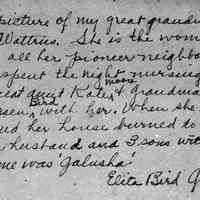 picture of my great grandm
Wattrus. She is the wom
all her pioneer neighbo
spent the night nursing
eat aunt Kate Moore & Grandma
seen Bird with her. When she
nd her house burned to
r husband and 3 sons with
me was 'Galusha'
Elita Bird G